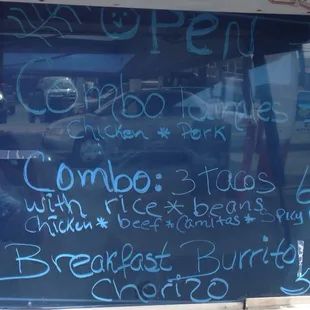 OPEN
Combo Tamales
Chicken * Pork
Combo: 3 tacos 6
with rice * beans
Chicken * beef * Carnitas *
Breakfast Burrito
Chorizo 5